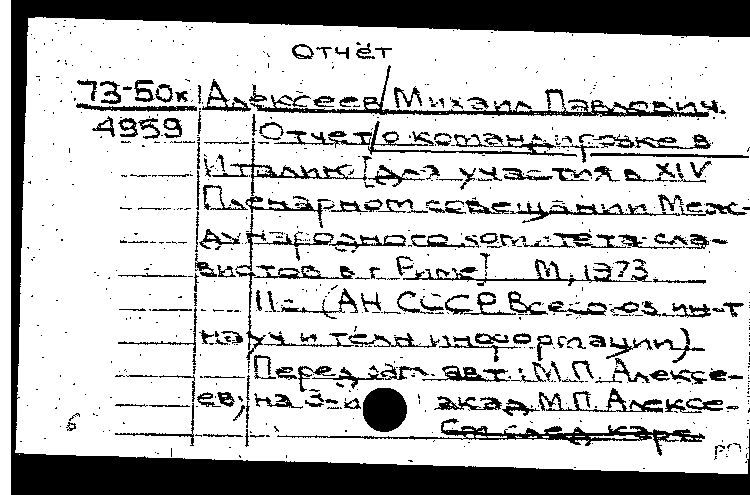 Отчёт
73-50к Алексеев, Михаил Павлович.
4959 Отчет о командировке в
Италию [для участия в XIV
Пленарном совещании Меж-
дународного комитета сла-
вистов в г. Риме] М, 1973.
11с. (АН СССР. Всесоюз. ин-т
науч и техн информации).
Перед загл. авт.: М.П. Алексе-
ев; на 3-й акад. М.П. Алексе-
См след карт.
6